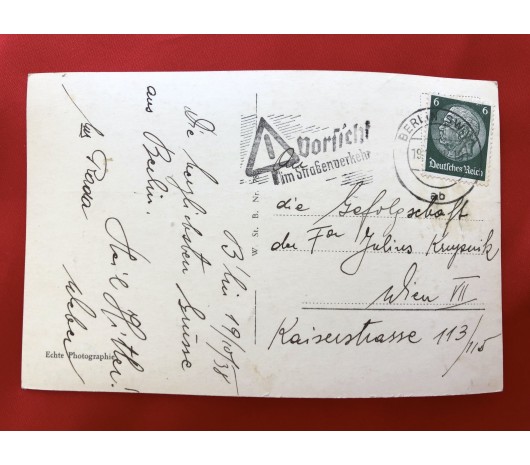 B'lin 19/10/38
Die herzlichsten Grüsse
aus Berlin.
Heil Hitler!
Weber
Echte Photographie
W. St. B. Nr.
Vorsicht
im Straßenverkehr
BERLIN SW 11
19.
ab
6 6
Deutsches Reich
An
die Gefolgschaft
der Fa Julius Krupnik
Wien VII
Kaiserstrasse 113/115